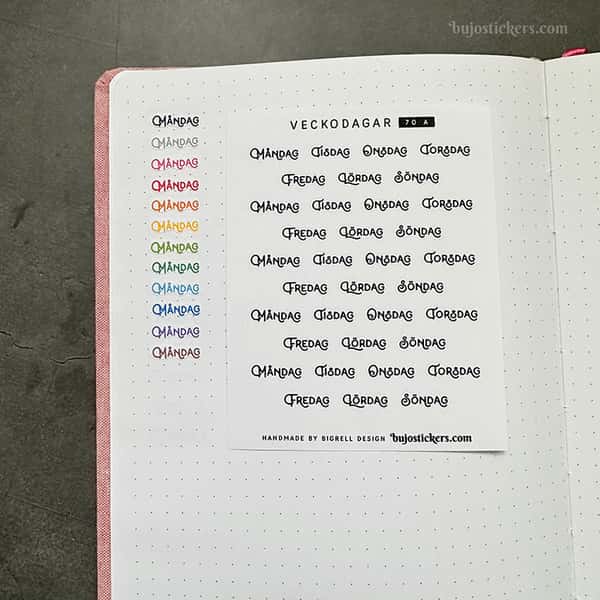 bujostickers.com
MÅNDAG
MÅNDAG
MÅNDAG
MÅNDAG
MÅNDAG
MÅNDAG
MÅNDAG
MÅNDAG
MÅNDAG
MÅNDAG
MÅNDAG
MÅNDAG
VECKODAGAR 70 A
MÅNDAG TISDAG ONSDAG TORSDAG
FREDAG LÖRDAG SÖNDAG
MÅNDAG TISDAG ONSDAG TORSDAG
FREDAG LÖRDAG SÖNDAG
MÅNDAG TISDAG ONSDAG TORSDAG
FREDAG LÖRDAG SÖNDAG
MÅNDAG TISDAG ONSDAG TORSDAG
FREDAG LÖRDAG SÖNDAG
MÅNDAG TISDAG ONSDAG TORSDAG
FREDAG LÖRDAG SÖNDAG
HANDMADE BY BIGRELL DESIGN bujostickers.com